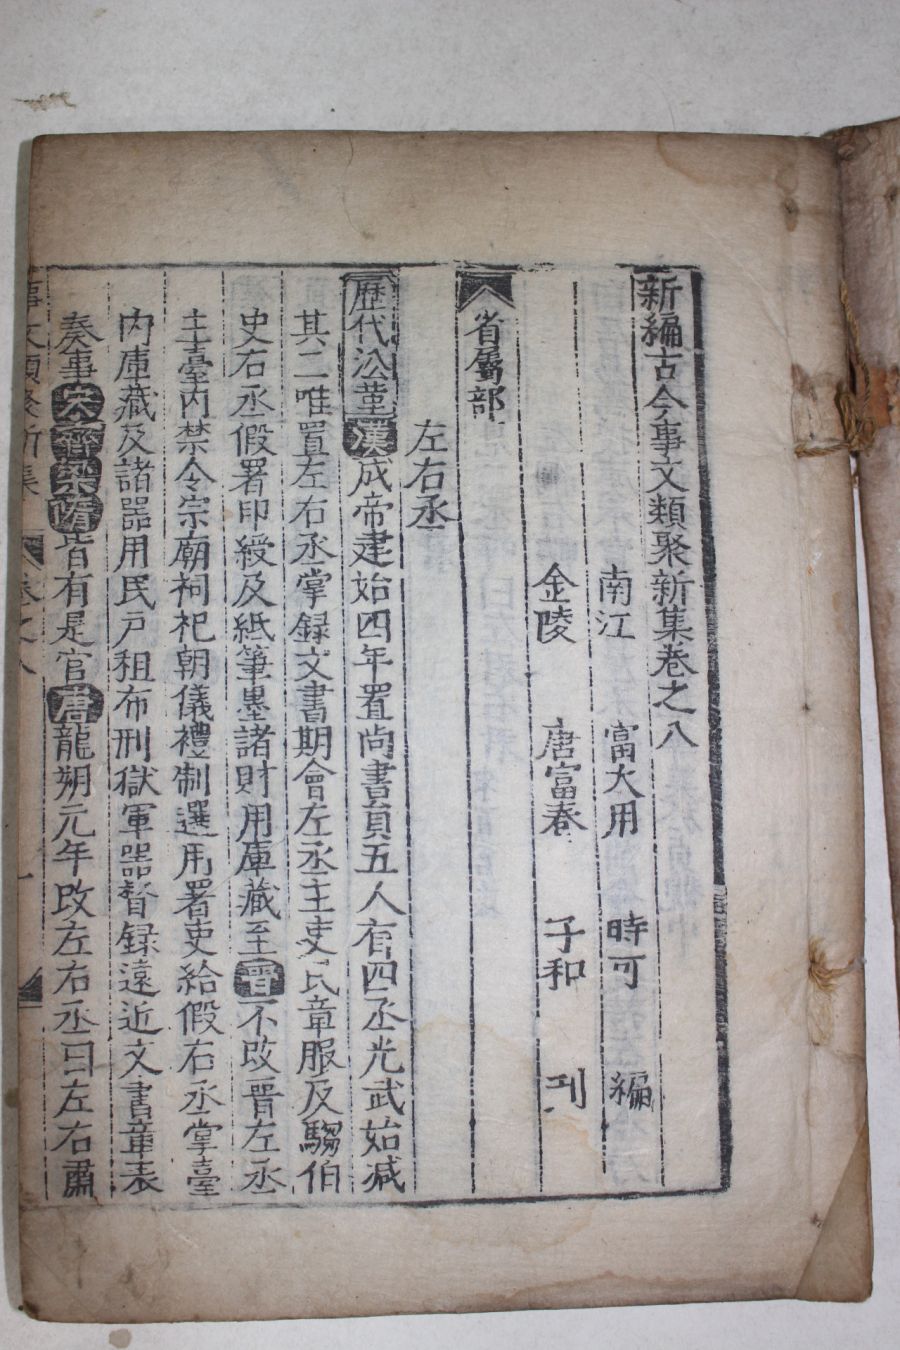 新編古今事文類聚新集卷之八
南江 富大用 時可 編
金陵 唐富春 子和 刊
省屬部
左右丞
歷代㳂革漢成帝建始四年置尚書員五人有四丞光武始减
其二唯置左右丞掌録文書期會左丞主吏民章服及騶伯
史右丞假署印綬及紙筆墨諸財用庫藏至晉不改晉左丞
主臺內禁令宗廟祠祀朝儀禮制選用署吏給假右丞掌臺
內庫藏及諸器用民戸租布刑獄軍器督録遠近文書章表
奏事宋齊梁隋皆有是官唐龍朔元年改左右丞曰左右肅
事文類聚新集 卷之八 一